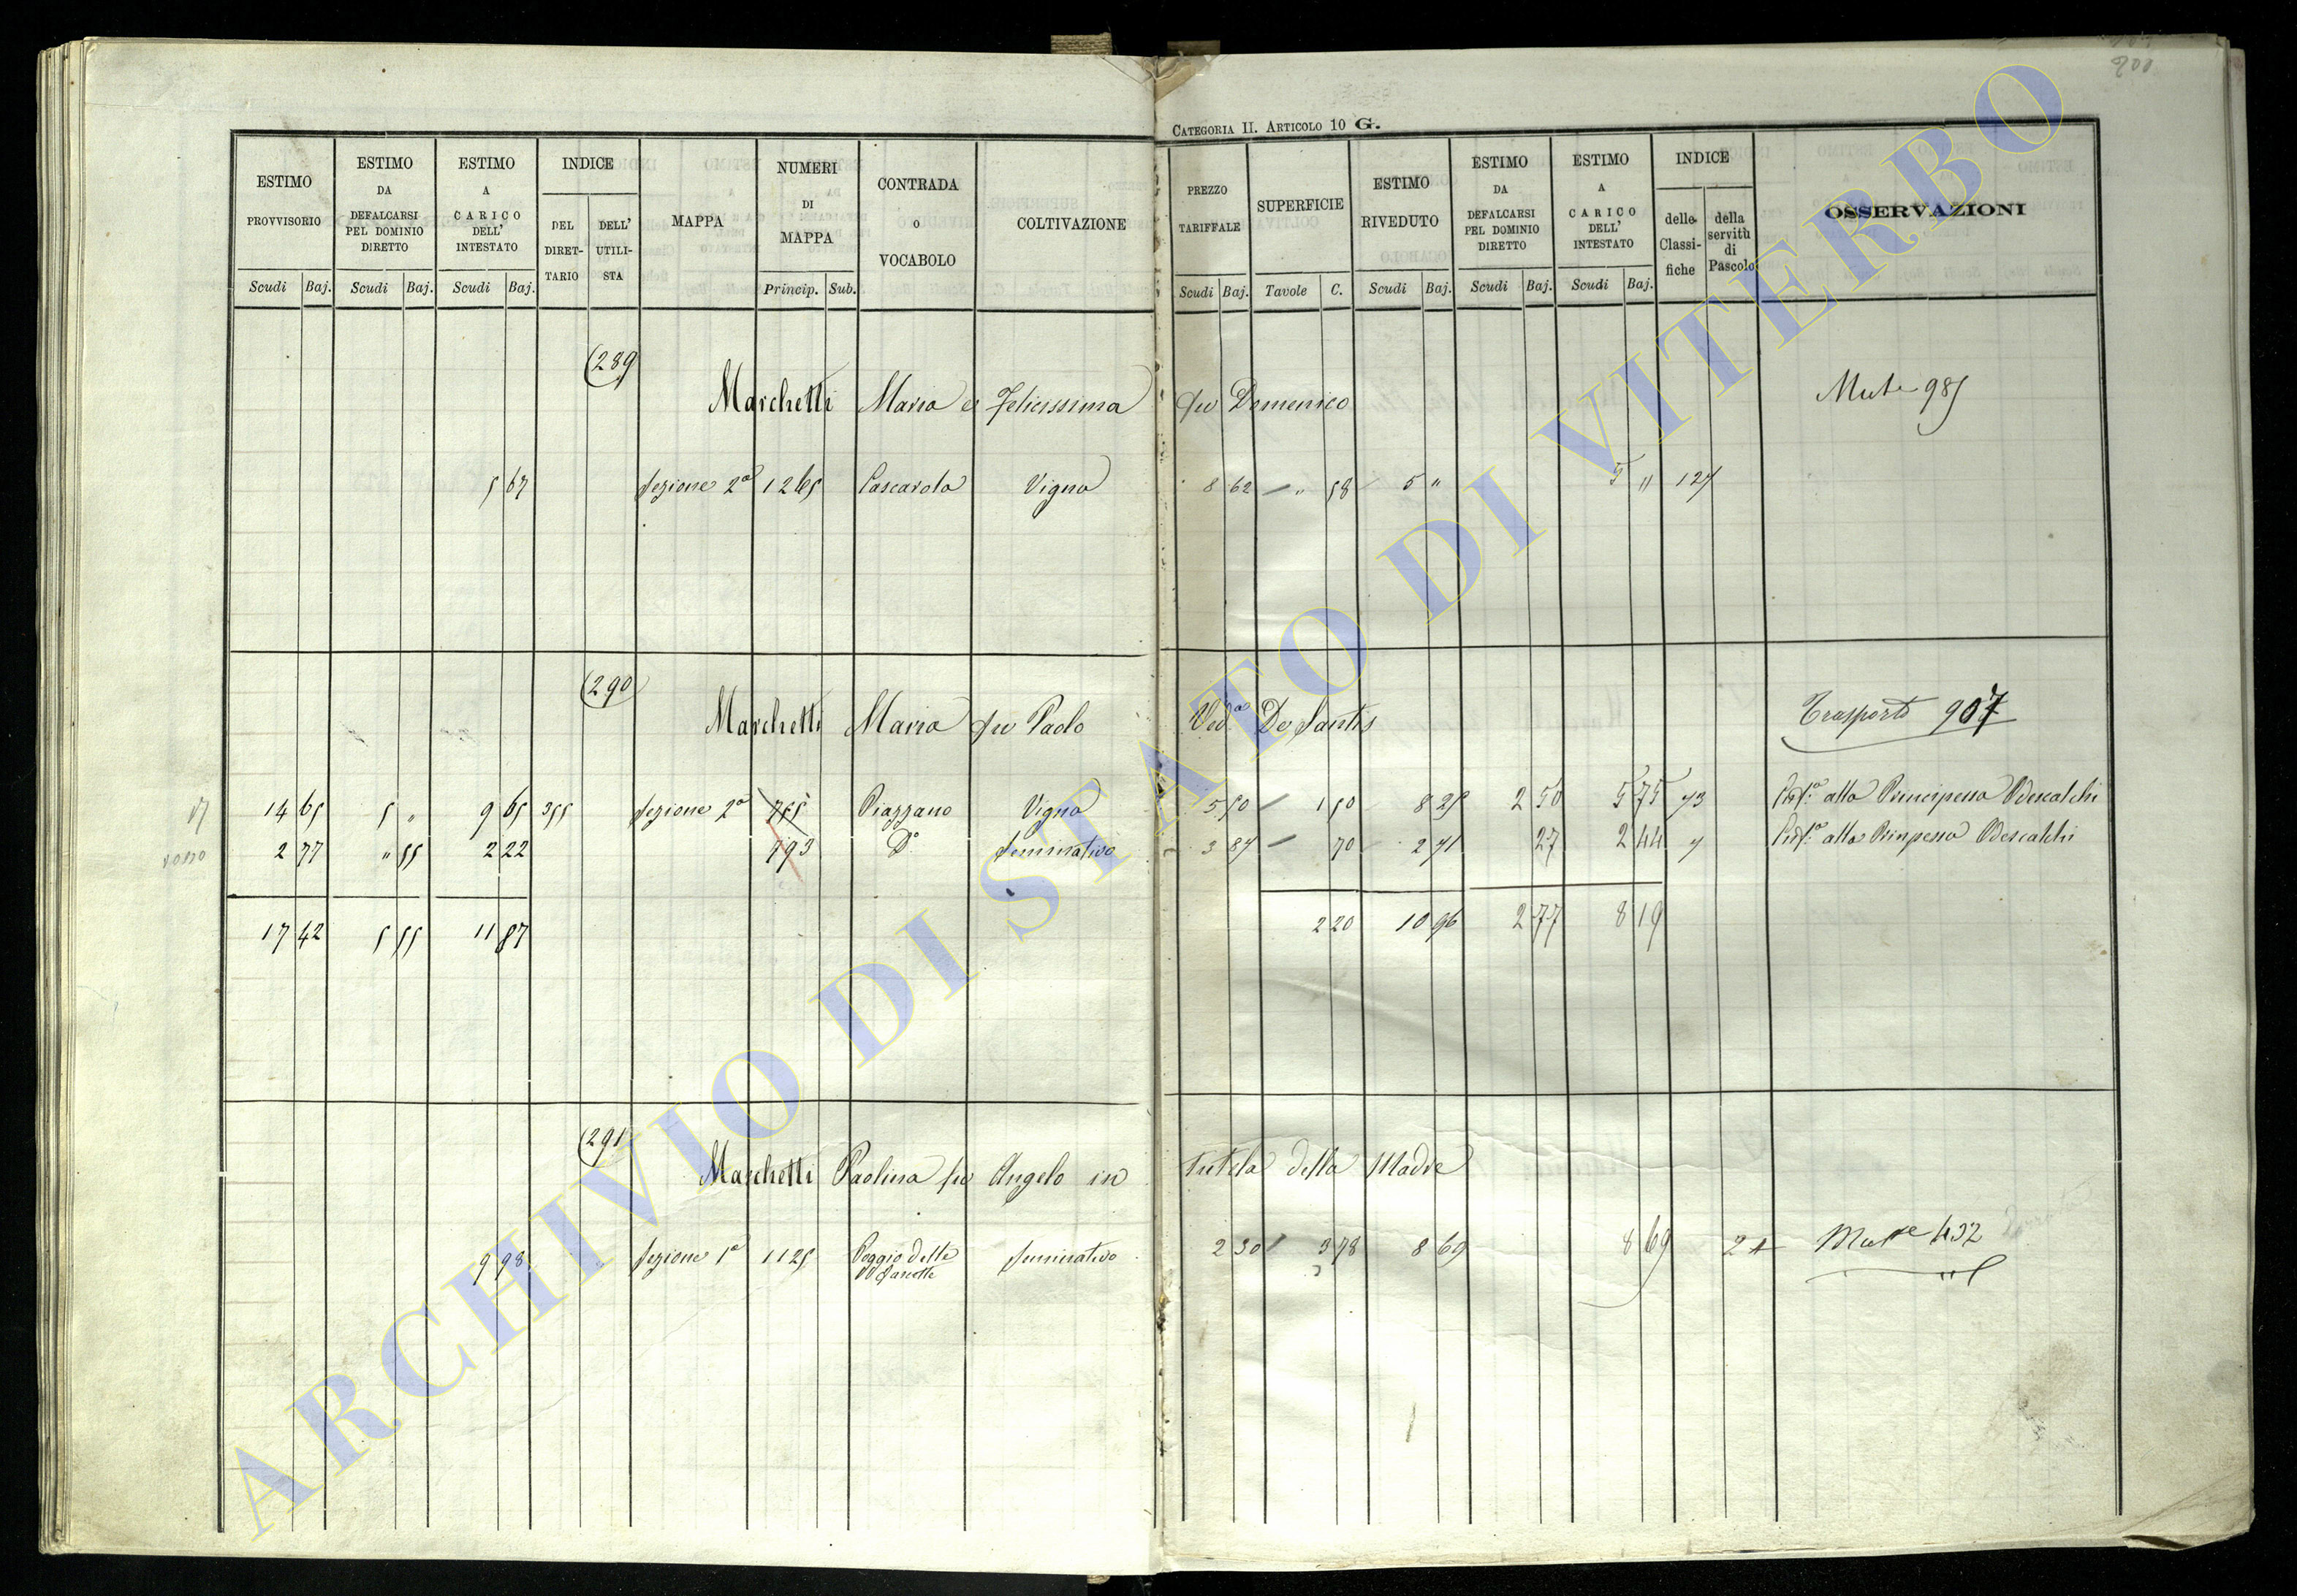 200
CATEGORIA II. ARTICOLO 10 G.
ESTIMO PROVVISORIO
ESTIMO DA DEFALCARSI PEL DOMINIO DIRETTO
ESTIMO A CARICO DELL' INTESTATO
INDICE
DEL DIRET-TARIO
DELL' UTILI-STA
MAPPA
NUMERI DI MAPPA
CONTRADA O VOCABOLO
COLTIVAZIONE
Scudi Baj. Scudi Baj. Scudi Baj. Princip. Sub.
PREZZO TARIFFALE
SUPERFICIE
ESTIMO RIVEDUTO
ESTIMO DA DEFALCARSI PEL DOMINIO DIRETTO
ESTIMO A CARICO DELL' INTESTATO
INDICE
delle Classi-fiche
della servitù di Pascolo
OSSERVAZIONI
Scudi Baj. Tavole C. Scudi Baj. Scudi Baj. Scudi Baj.
289
Marchetti Maria e Felicissima fu Domenico
5 67 Sezione 2a 1265 Cascarola Vigna 8 62 " 58 5 " 5 " 127
290
Marchetti Maria fu Paolo Ved.a De Santis Trasporto 907
14 65 5 " 9 65 355 Sezione 2a 755 Piazzano Vigna 5 50 1 50 8 25 2 50 5 75 73 alla Principessa Odescalchi
2 77 " 55 2 22 793 Do Seminativo 3 87 70 2 71 27 2 44 7 alla Prinpessa Odescalchi
17 42 5 55 11 87 2 20 10 96 2 77 8 19
291
Marchetti Paolina fu Angelo in tutela della Madre
9 98 Sezione 1a 1125 Poggio delle Seminativo 2 30 3 78 8 69 8 69 432
ARCHIVIO DI STATO DI VITERBO